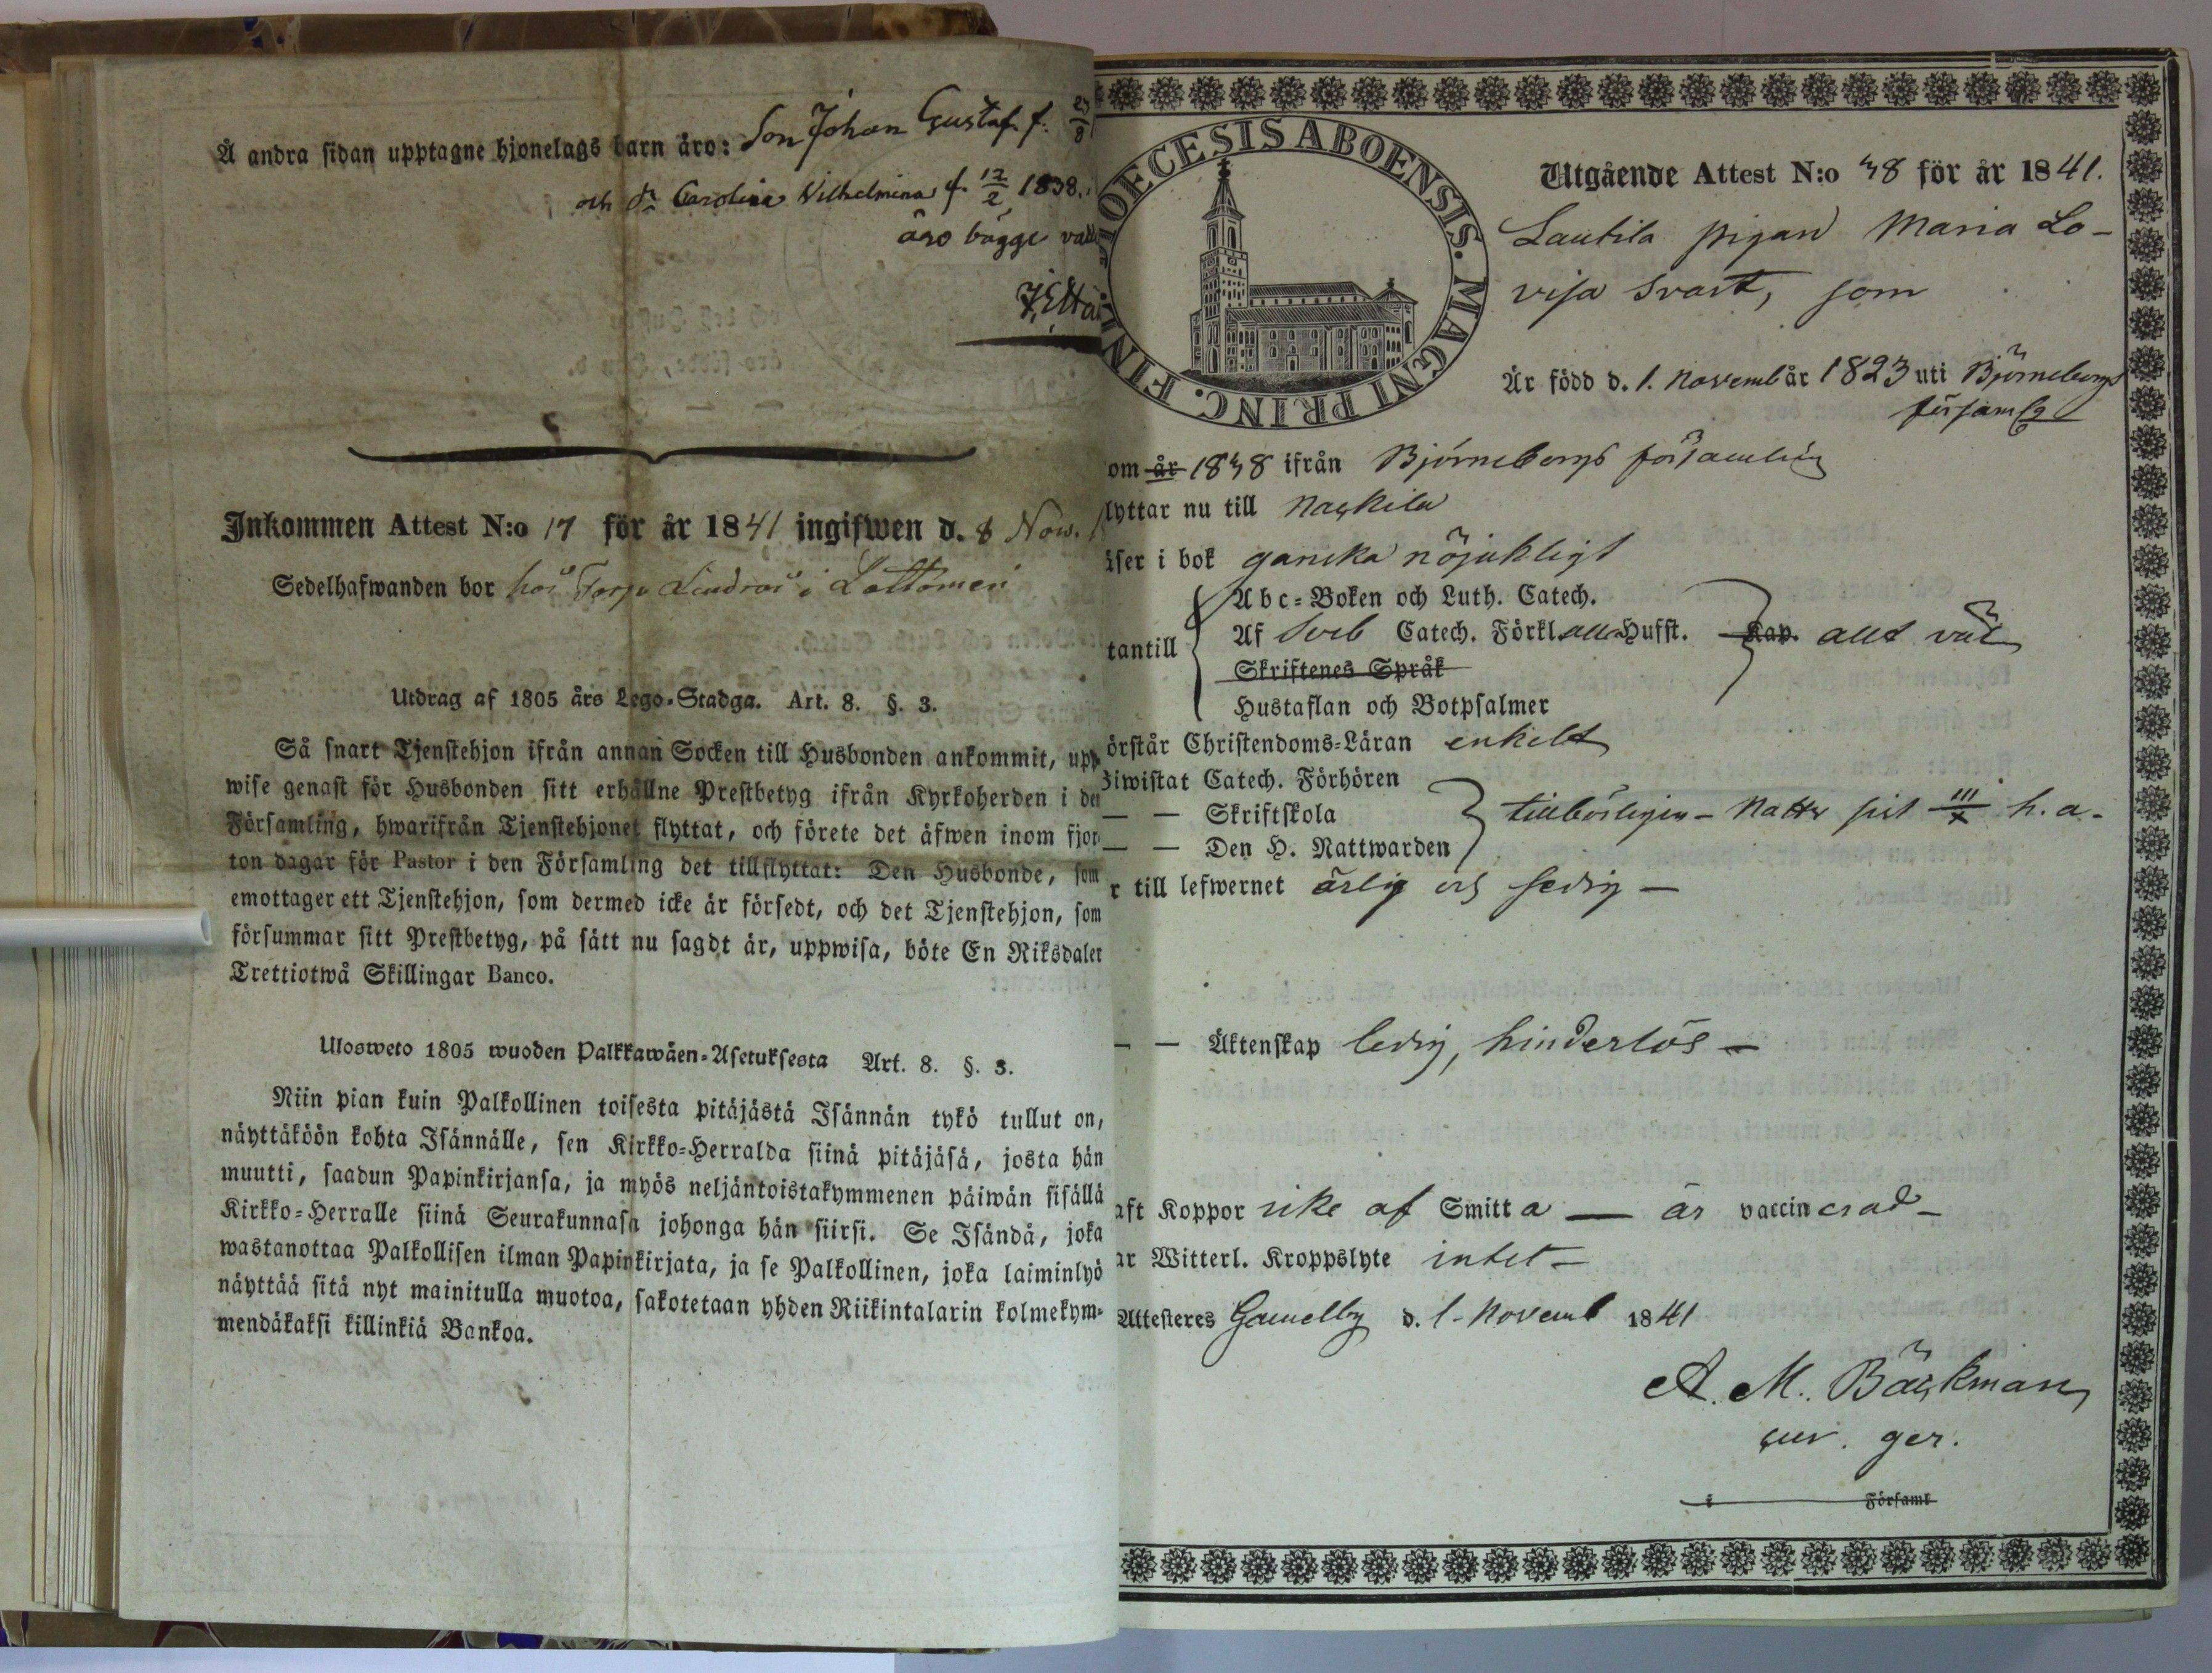 Å andra sidan upptagne hjonelags barn äro: Son Johan Gustaf f. 
och dr Carolina Wilhelmina f. 12/2 1838.
äro bägge
Inkommen Attest N:o 17 för år 1841 ingifwen d. 8 Nov.
Sedelhafwanden bor hos Torp. Lindros i Lattomeri
Utdrag af 1805 års Lego-Stadga. Art. 8. §. 3.
Så snart Tjenstehjon ifrån annan Socken till Husbonden ankommit, upp-
wise genast för Husbonden sitt erhållne Prestbetyg ifrån Kyrkoherden i den
Församling, hwarifrån Tjenstehjonet flyttat, och förete det äfwen inom fjor-
ton dagar för Pastor i den Församling det tillflyttat: Den Husbonde, som
emottager ett Tjenstehjon, som dermed icke är försedt, och det Tjenstehjon, som
försummar sitt Prestbetyg, på sätt nu sagdt är, uppwisa, böte En Riksdaler
Trettiotwå Skillingar Banco.
Ulosweto 1805 wuoden Palkkawäen-Asetuksesta Art. 8. §. 3.
Niin pian kuin Palkollinen toisesta pitäjästä Isännän tykö tullut on,
näyttäköön kohta Isännälle, sen Kirkko-Herralda siinä pitäjäsä, josta hän
muutti, saadun Papinkirjansa, ja myös neljäntoistakymmenen päiwän sisällä
Kirkko-Herralle siinä Seurakunnasa johonga hän siirsi. Se Isändä, joka
wastanottaa Palkollisen ilman Papinkirjata, ja se Palkollinen, joka laiminlyö
näyttää sitä nyt mainitulla muotoa, sakotetaan yhden Riikintalarin kolmekym-
mendäkaksi killinkiä Bankoa.
DIOECESIS ABOENSIS. MAGNI PRINC. FINL.
Utgående Attest N:o 38 för år 1841.
Lautila pigan Maria Lo-
visa Svart, som
Är född d. 1. Novemb år 1823 uti Björneborgs
församlg
om år 1838 ifrån Björneborgs församling
lyttar nu till Nackila
äser i bok ganska nöjaktligt
tantill
Abc-Boken och Luth. Catech.
Af Sveb Catech. Förkl. alla Hufst. Kap. allt väl
Skriftenes Språk
Hustaflan och Botpsalmer
örstår Christendoms-Läran enkelt
Biwistat Catech. Förhören
— — Skriftskola tillbörligen - Nattv sist III/X h. a.
— — Den H. Nattwarden
r till lefwernet ärlig och sedig —
— — Äktenskap ledig, hinderlös —
aft Koppor icke af Smitta — är vaccinerad —
ar Witterl. Kroppslyte intet —
Attesteres Gamelby d. 1. Novemb 1841
A. M. Bäckman
cur. ger.
i Församl